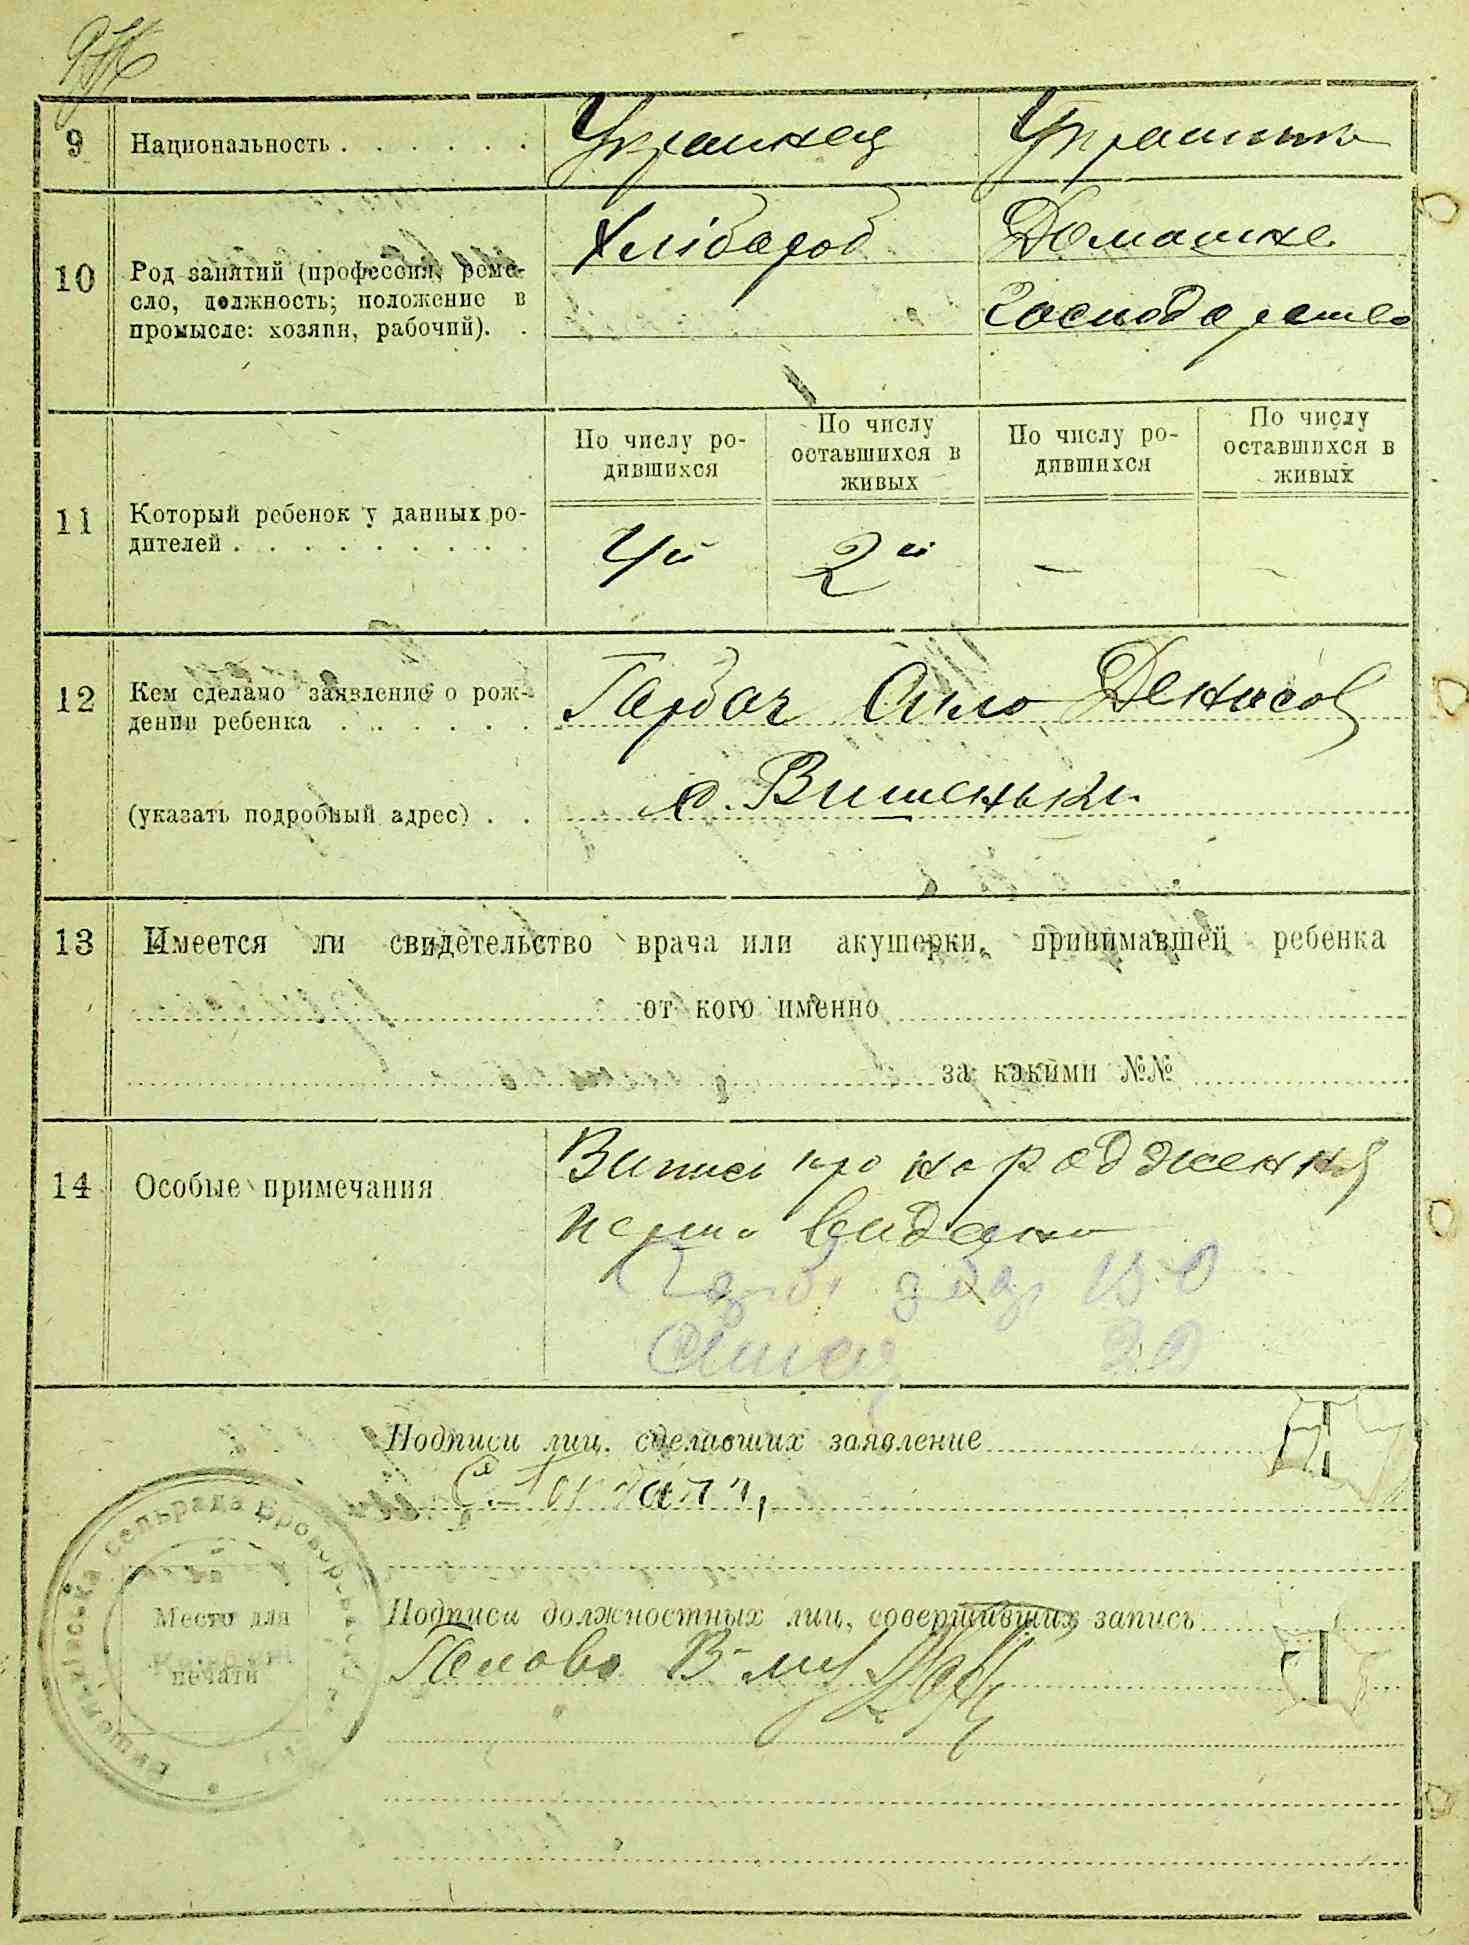 9 Национальность . . . . . . Украинец Украинка
10 Род занятий (профессия, ремесло, должность; положение в промысле: хозяин, рабочий). . Хлібороб Домашнє господарство
11 Который ребенок у данных родителей . . . . . . . . .
По числу родившихся
По числу оставшихся в живых
По числу родившихся
По числу оставшихся в живых
4й 2й – –
12 Кем сделано заявление о рождении ребенка . . . . . . Горбач Сило Денисов
(указать подробный адрес) . . с. Вишеньки
13 Имеется ли свидетельство врача или акушерки, принимавшей ребенка
от кого именно
за какими №№
14 Особые примечания
Витис про народження
перш видано
Подписи лиц, сделавших заявление
С. Горбач
Подписи должностных лиц, совершивших запись
Голова В-
Место для печати
сельрада